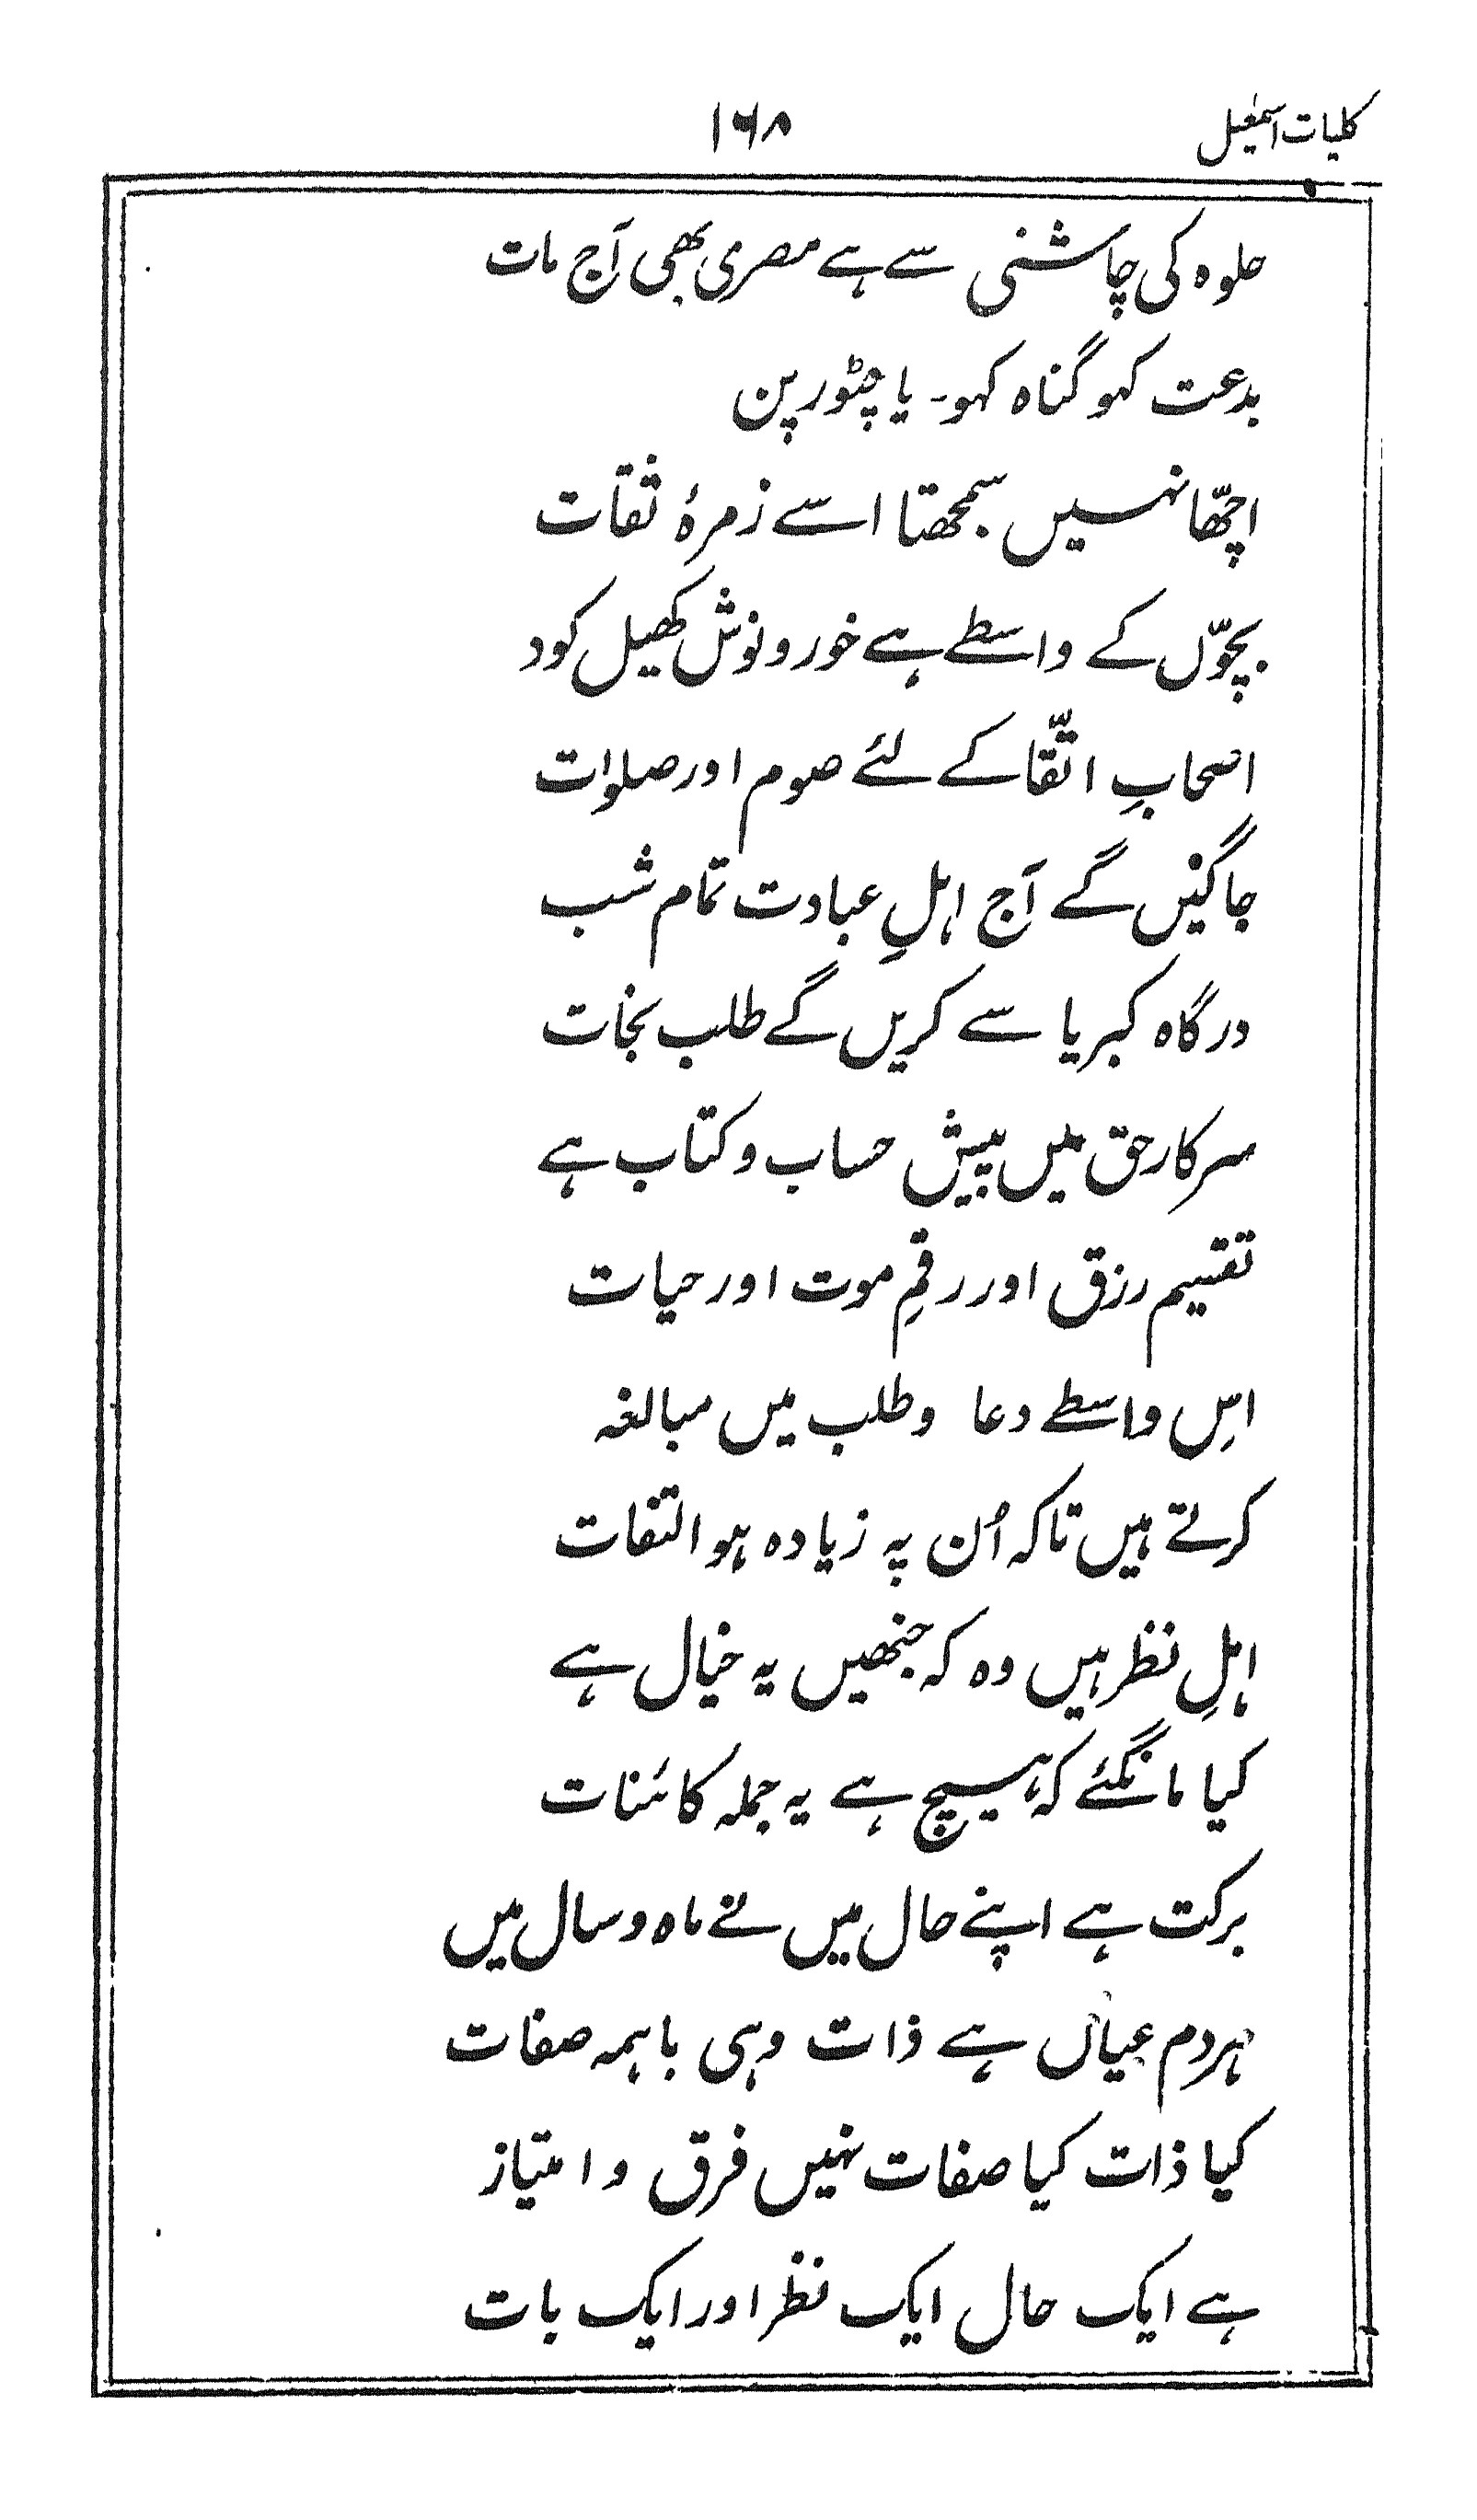 کلیات اسمٰعیل
۱۶۸
حلوہ کی چاشنی سے ہے مصری بھی آج مات
بدعت کہو گناہ کہو۔ یا چٹورپن
اچّھا نہیں سمجھتا اسے زمرۂ ثقات
بچوّں کے واسطے ہے خور و نوش کھیل کود
اصحابِ اتّقا کے لئے صوم اور صلوٰات
جاگیں گے آج اہلِ عبادت تمام شب
درگاہ کبریا سے کریں گے طلب نجات
سرکار حق میں پیش حساب و کتاب ہے
تقسیم رزق اور رقمِ موت اور حیات
اسِ واسطے دعا و طلب میں مبالغہ
کرتے ہیں تاکہ اُن پہ زیادہ ہو التفات
اہلِ نظر ہیں وہ کہ جنھیں یہ خیال ہے
کیا مانگئے کہ ہیچ ہے یہ جملہ کائنات
برکت ہے اپنے حال میں نے ماہ و سال میں
ہردم عیاں ہے ذات وہی باہمہ صفات
کیا ذات کیا صفات نہیں فرق و امتیاز
ہے ایک حال ایک نظر اور ایک بات